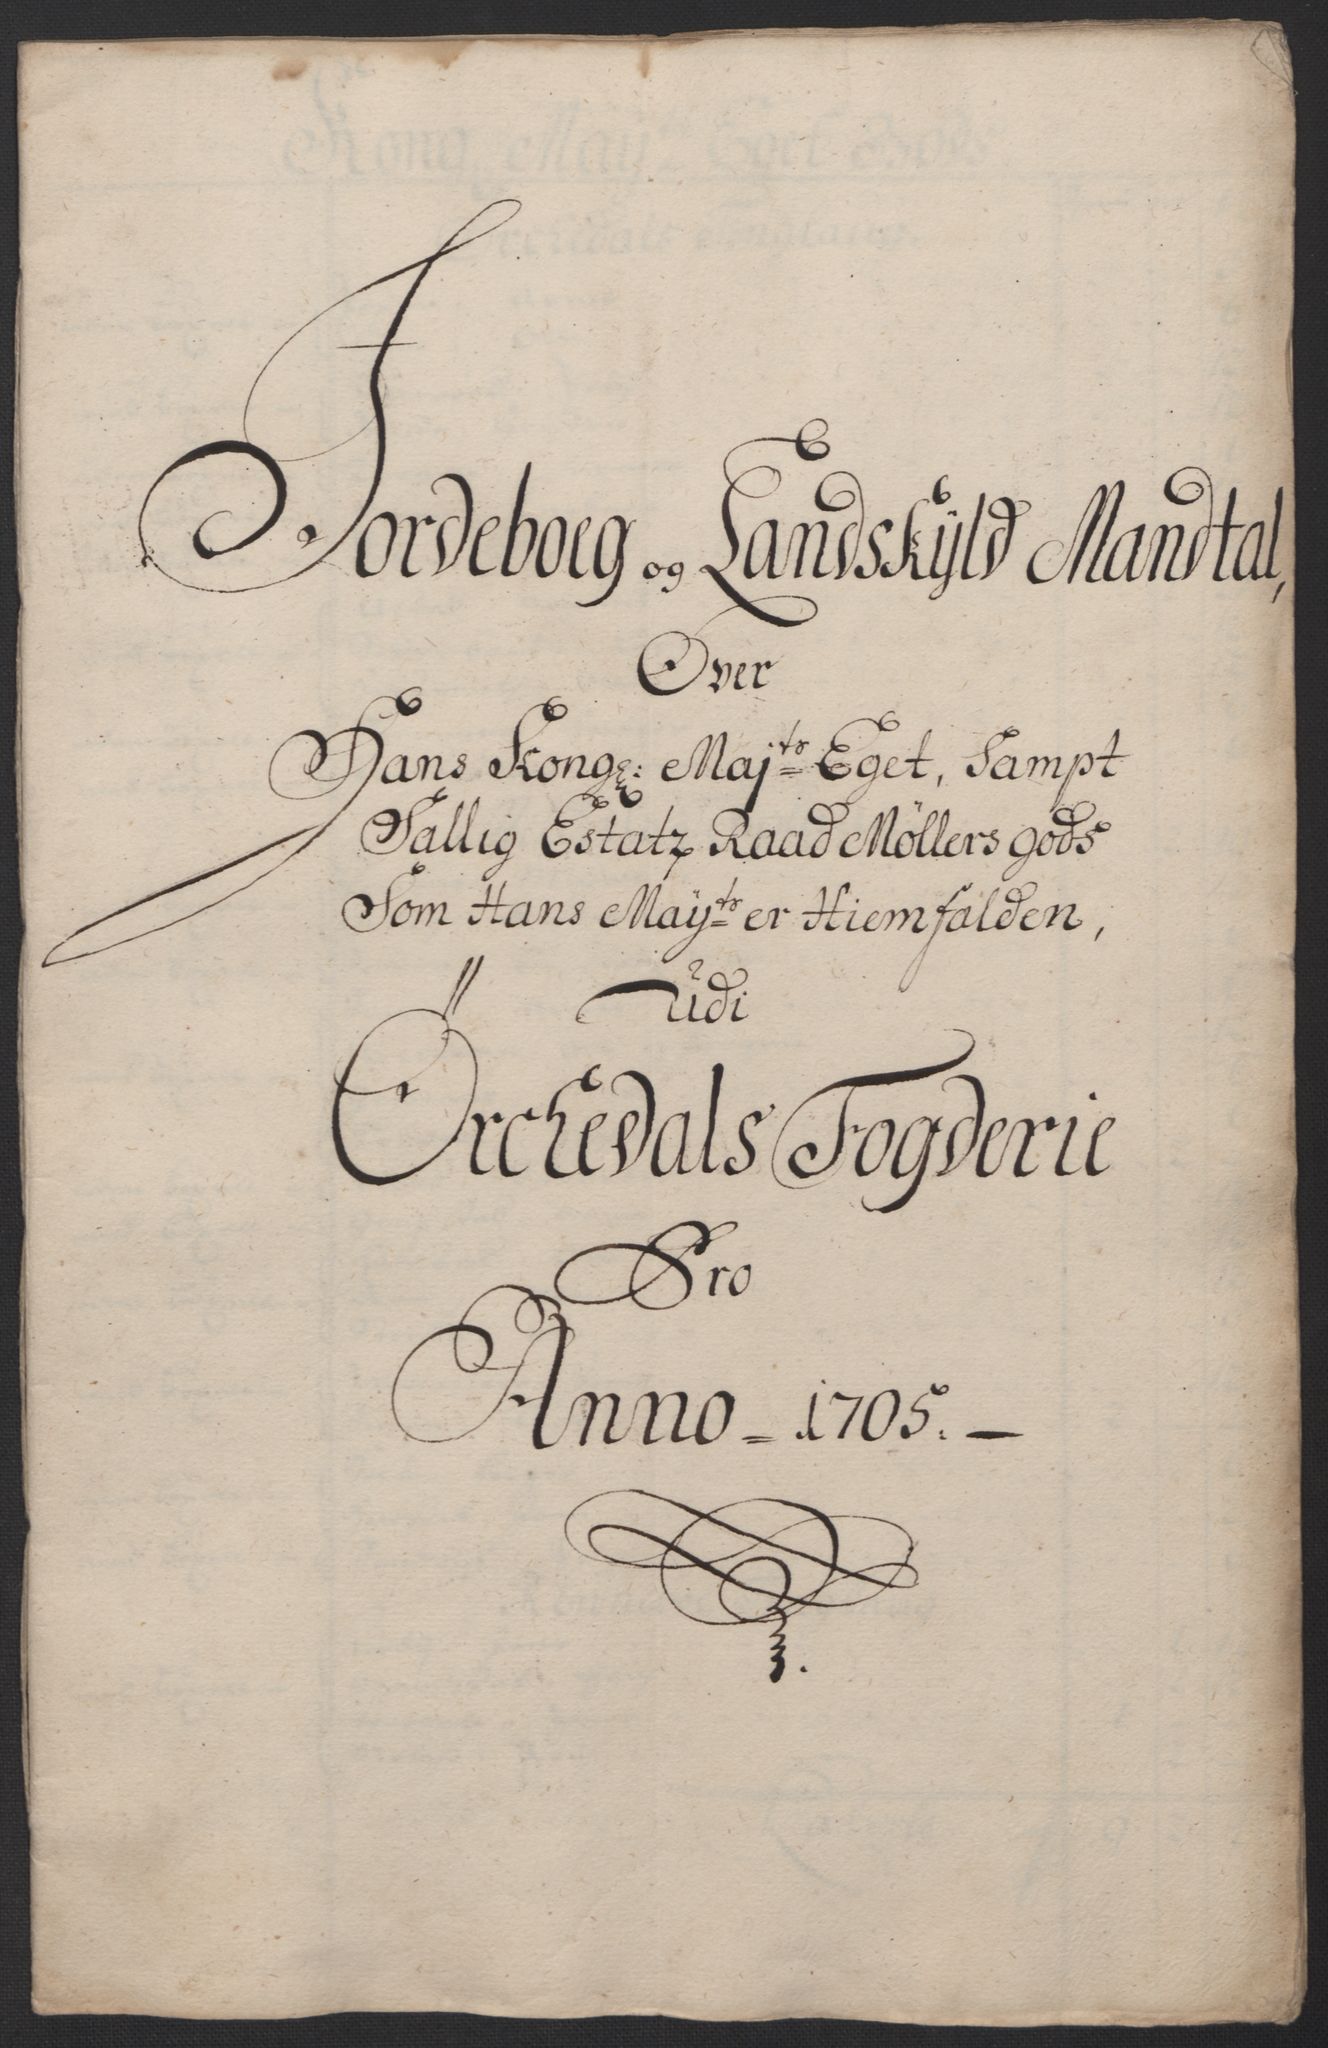 Jordeboeg og Landskÿld Mandtal,
Over
Hans Kong: Majts Eget, Sampt
Sállig Estatz Raad Möllers gods
Som Hans Maÿts er Hiemfalden,
Udi
Örchedals Fogderie
Pro
Anno 1705.